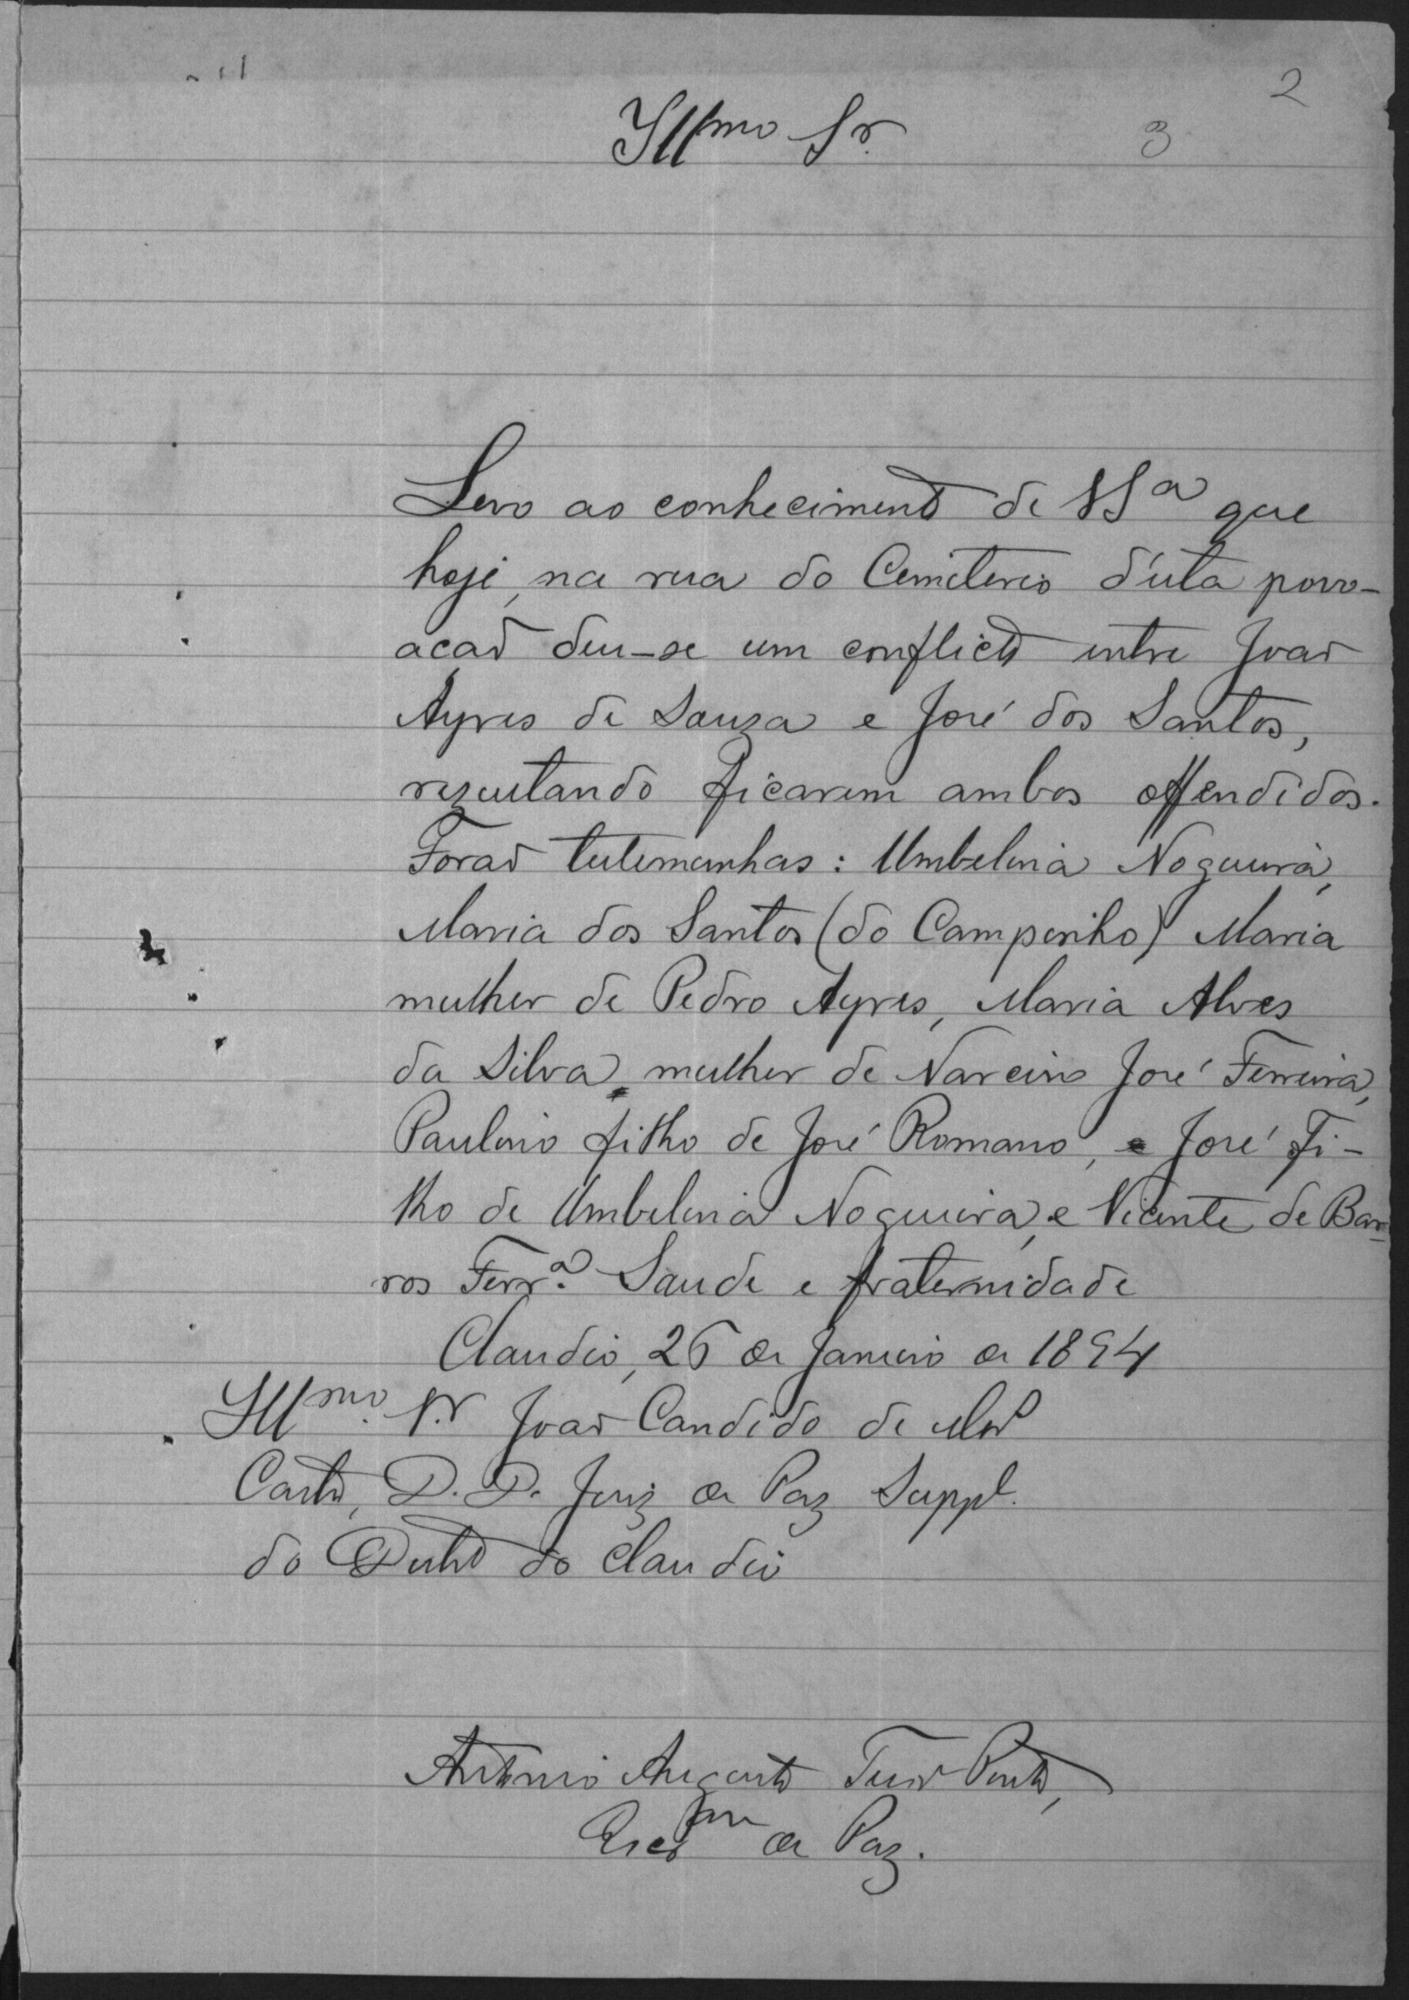 2
3
Illmo Sr.
Levo ao conhecimento de VSa que
hoje, na rua do Cemiterio d'esta povo-
acaõ deu-se um conflicto entre Joaõ
Ayres de Souza e José dos Santos,
rezultando ficarem ambos offendidos.
Foraõ testemunhas: Umbelina Nogueira,
Maria dos Santos (do Campinho) Maria
mulher de Pedro Ayres, Maria Alves
da Silva, mulher de Narciso José Ferreira,
Paulino filho de José Romano, e José Fi-
lho de Umbelina Nogueira, e Vicente de Bar-
ros Ferra. Saude e fraternidade
Claudio, 26 de Janeiro de 1894
Illmo. Sr. Joaõ Candido de
Castro, D. D. Juiz de Paz Suppl.
do Distto do Claudio
Antonio Augusto Pinto,
de Paz.